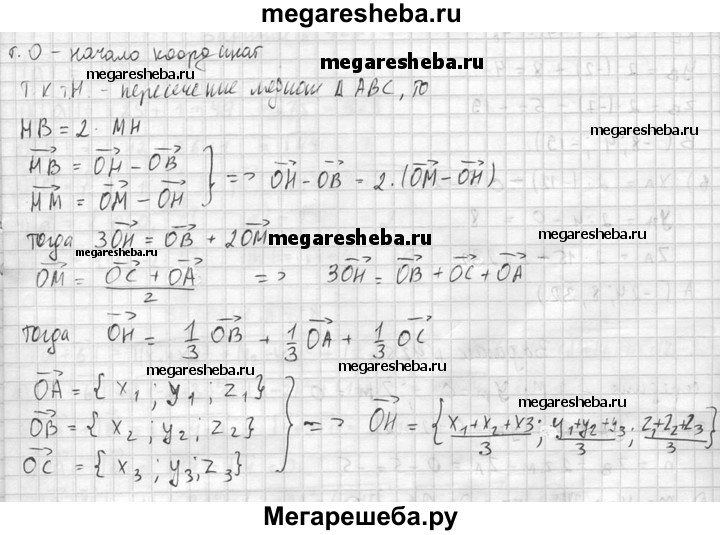 megaresheba.ru
т. O - начало координат
megaresheba.ru
megaresheba.ru
Т.к т.H - пересечение медиан Δ ABC, то
HB = 2 · MH
megaresheba.ru
HB = OH - OB
HM = OM - OH } => OH - OB = 2 · (OM - OH)
megaresheba.ru
тогда 3OH = OB + 2OM
megaresheba.ru
megaresheba.ru
megaresheba.ru
OM = OC + OA / 2 => 3OH = OB + OC + OA
тогда OH = 1/3 OB + 1/3 OA + 1/3 OC
megaresheba.ru
megaresheba.ru
OA = { x1 ; y1 ; z1 }
megaresheba.ru
OB = { x2 ; y2 ; z2 } => OH = { x1 + x2 + x3 / 3 ; y1 + y2 + y3 / 3 ; z1 + z2 + z3 / 3 }
megaresheba.ru
OC = { x3 ; y3 ; z3 }
Мегарешеба.ру